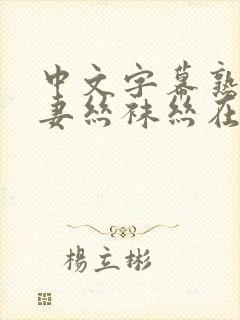 中文字幕熟
妻丝袜丝在
楊立彬